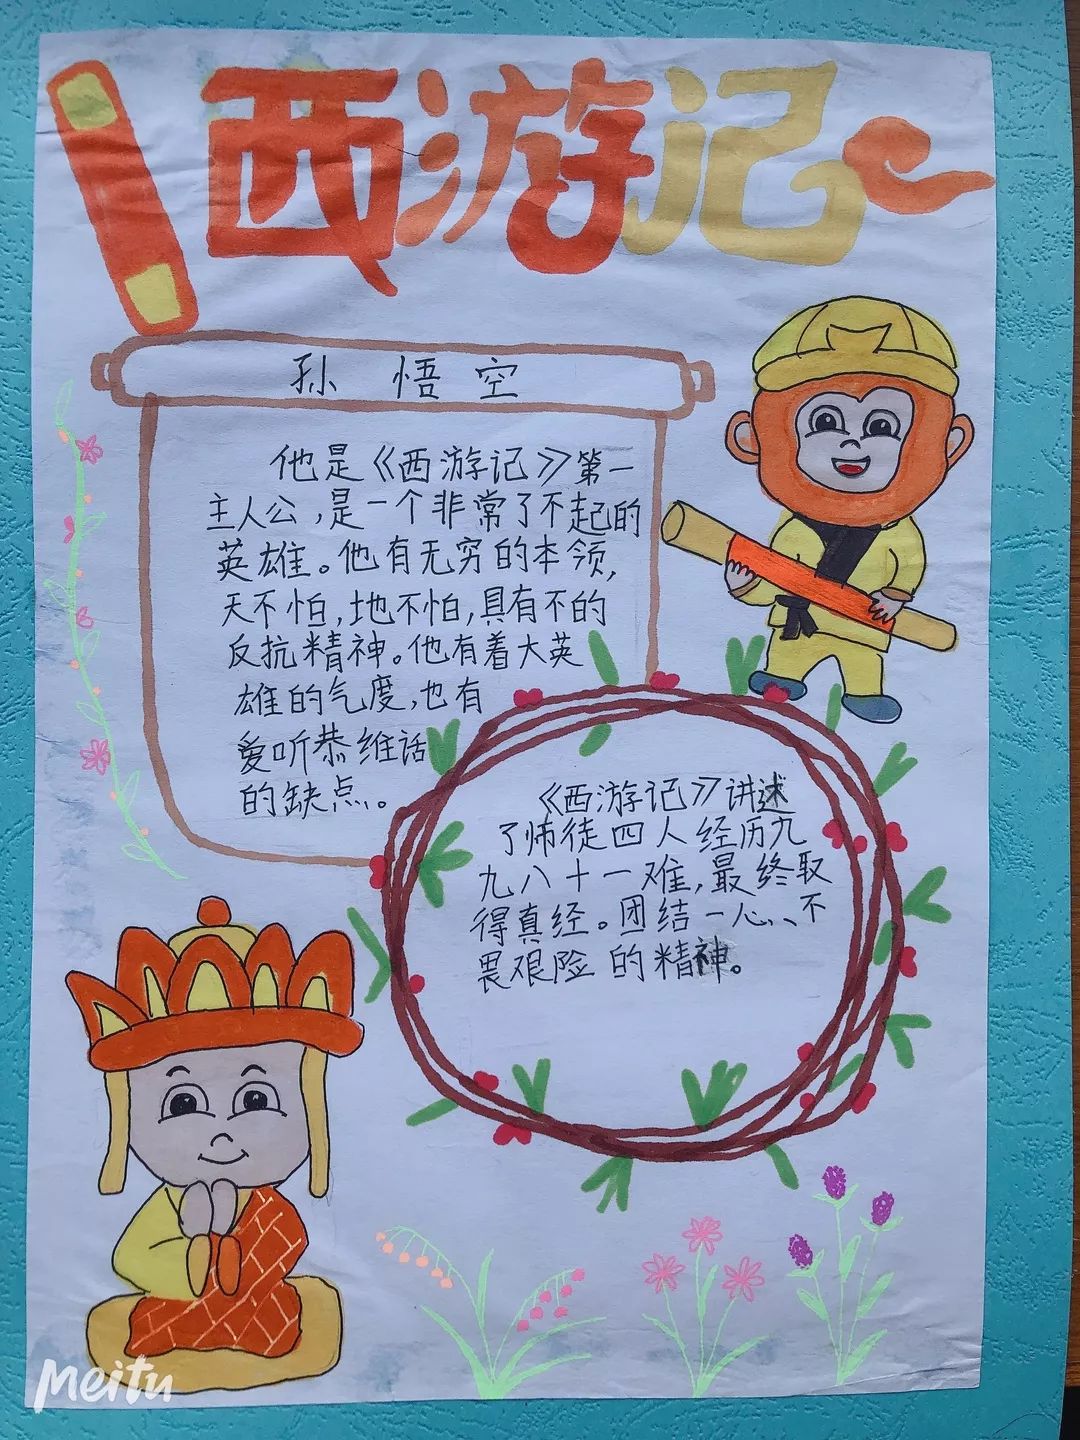 西游记
孙悟空
他是《西游记》第一
主人公,是一个非常了不起的
英雄。他有无穷的本领,
天不怕,地不怕,具有不的
反抗精神。他有着大英
雄的气度,也有
爱听恭维话
的缺点。
《西游记》讲述
了师徒四人经历九
九八十一难,最终取
得真经。团结一心、不
畏艰险的精神。
Meitu